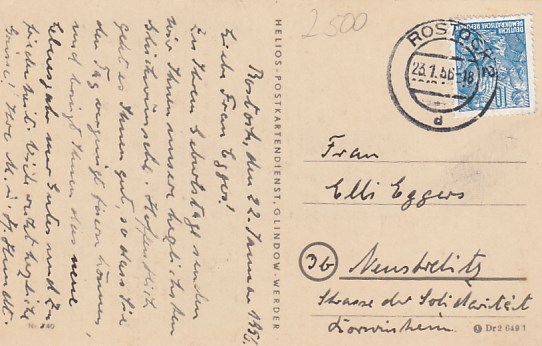 Rostock, den 22. Januar 1956.
Liebe Frau Eggers!
Zu Ihrem Geburtstag senden
wir Ihnen unsere herzlichsten
Glückwünsche. Hoffentlich
geht es Ihnen gut, so dass Sie
den Tag vergnügt feiern können,
und bringt Ihnen das neue
Lebensjahr nur Gutes und Zu-
friedenheit. Seid recht herzlichst
HELIOS-POSTKARTENDIENST, GLINDOW-WERDER
2500
ROSTOCK 2
23.1.56-18
d
DEUTSCHE
DEMOKRATISCHE REPUBLIK
10
Frau
Elli Eggers
3b Neustrelitz
Strasse der Solidarität
Dr 2 649 1